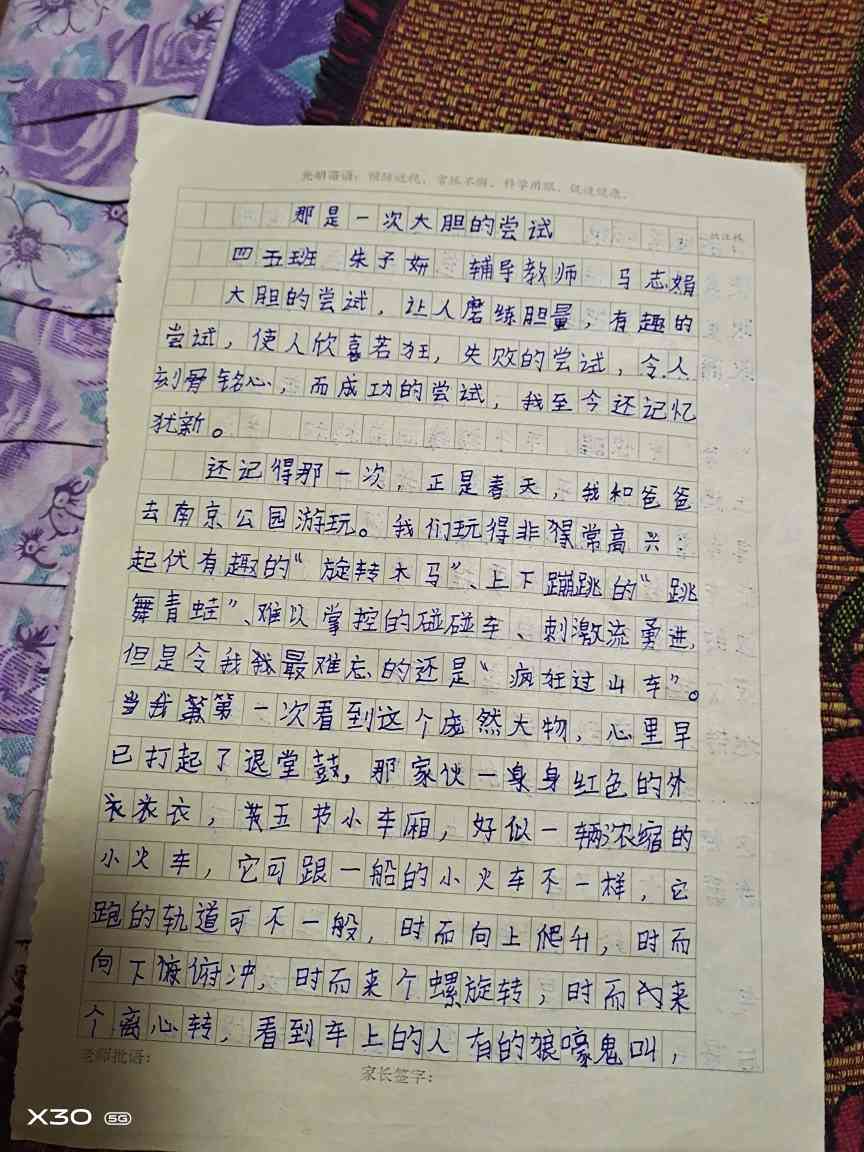 光明语语：预防近视，常抓不懈，科学用眼，促进健康。
那是一次大胆的尝试
四五班 朱子妍 辅导教师 马志娟
大胆的尝试，让人磨练胆量，有趣的
尝试，使人欣喜若狂，失败的尝试，令人
刻骨铭心，而成功的尝试，我至今还记忆
犹新。
还记得那一次，正是春天，我和爸爸
去南京公园游玩。我们玩得非常高兴：
起伏有趣的“旋转木马”、上下蹦跳的“跳
舞青蛙”、难以掌控的碰碰车、刺激流勇进，
但是令我最难忘的还是“疯狂过山车”。
当我第一次看到这个庞然大物，心里早
已打起了退堂鼓，那家伙一身红色的外
衣，五节小车厢，好似一辆浓缩的
小火车，它可跟一船的小火车不一样，它
跑的轨道可不一般，时而向上爬升，时而
向下俯冲，时而来个螺旋转，时而来
个离心转，看到车上的人有的狼嚎鬼叫，
老师批语：
家长签字：
X30 5G